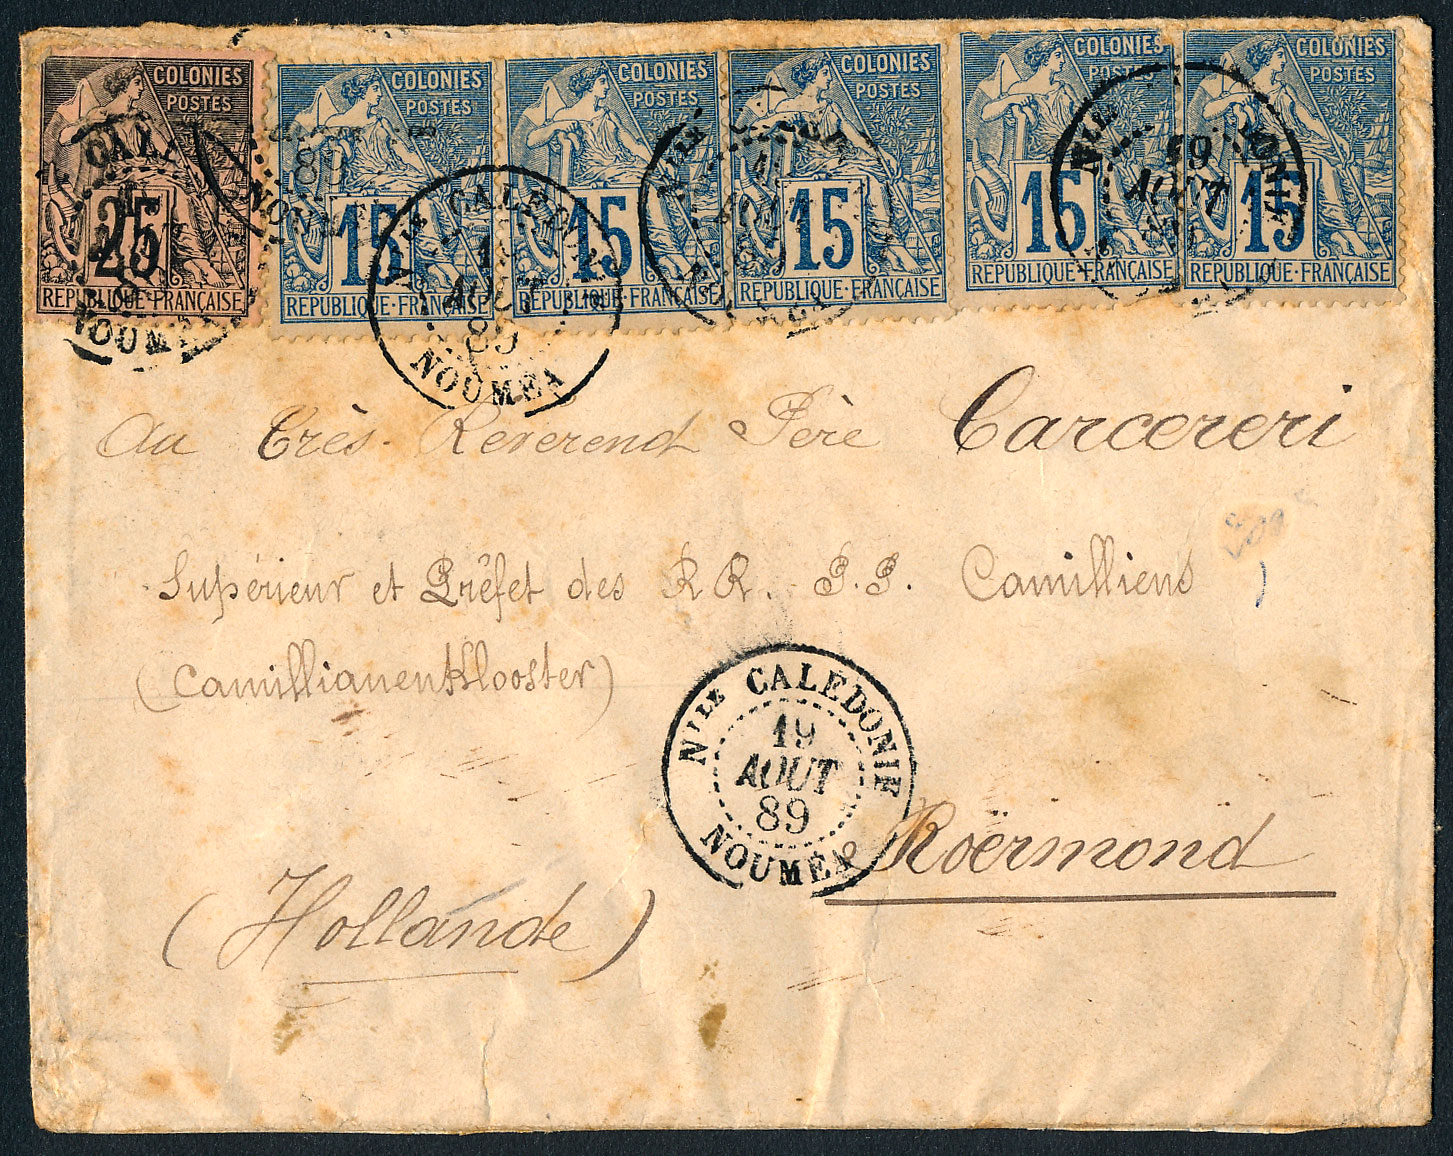 COLONIES COLONIES COLONIES COLONIES COLONIES COLONIES
POSTES POSTES POSTES POSTES POSTES POSTES
25 15 15 15 15 15
REPUBLIQUE·FRANÇAISE REPUBLIQUE·FRANÇAISE REPUBLIQUE·FRANÇAISE REPUBLIQUE·FRANÇAISE REPUBLIQUE·FRANÇAISE REPUBLIQUE·FRANÇAISE
CALE
NOUM
89
NOUM
Nlle CALEDON
AOUT
89
NOUMEA
Nlle
19
AOUT
Au Très Reverend Père Carcereri
Supérieur et Préfet des RR. P.P. Camilliens
(Camillianenklooster)
Nlle CALEDONIE
19
AOUT
89
NOUMEA
Roërmond
(Hollande)